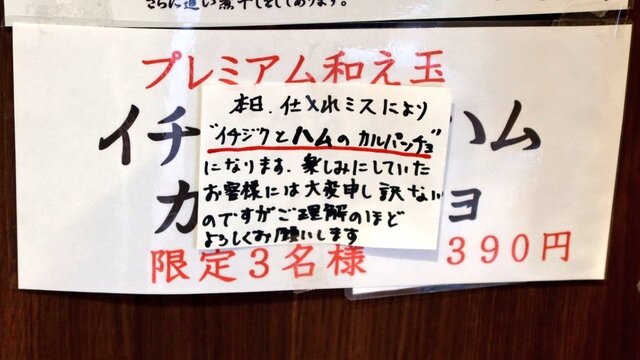 さらに追い煮干しをしてあります。
プレミアム和え玉
イチ
ハム
カ
ョ
限定3名様
390円
本日、仕入れミスにより
"イチジクとハムのカルパッチョ"
になります。楽しみにしていた
お客様には大変申し訳ない
のですがご理解のほど
よろしくお願いします